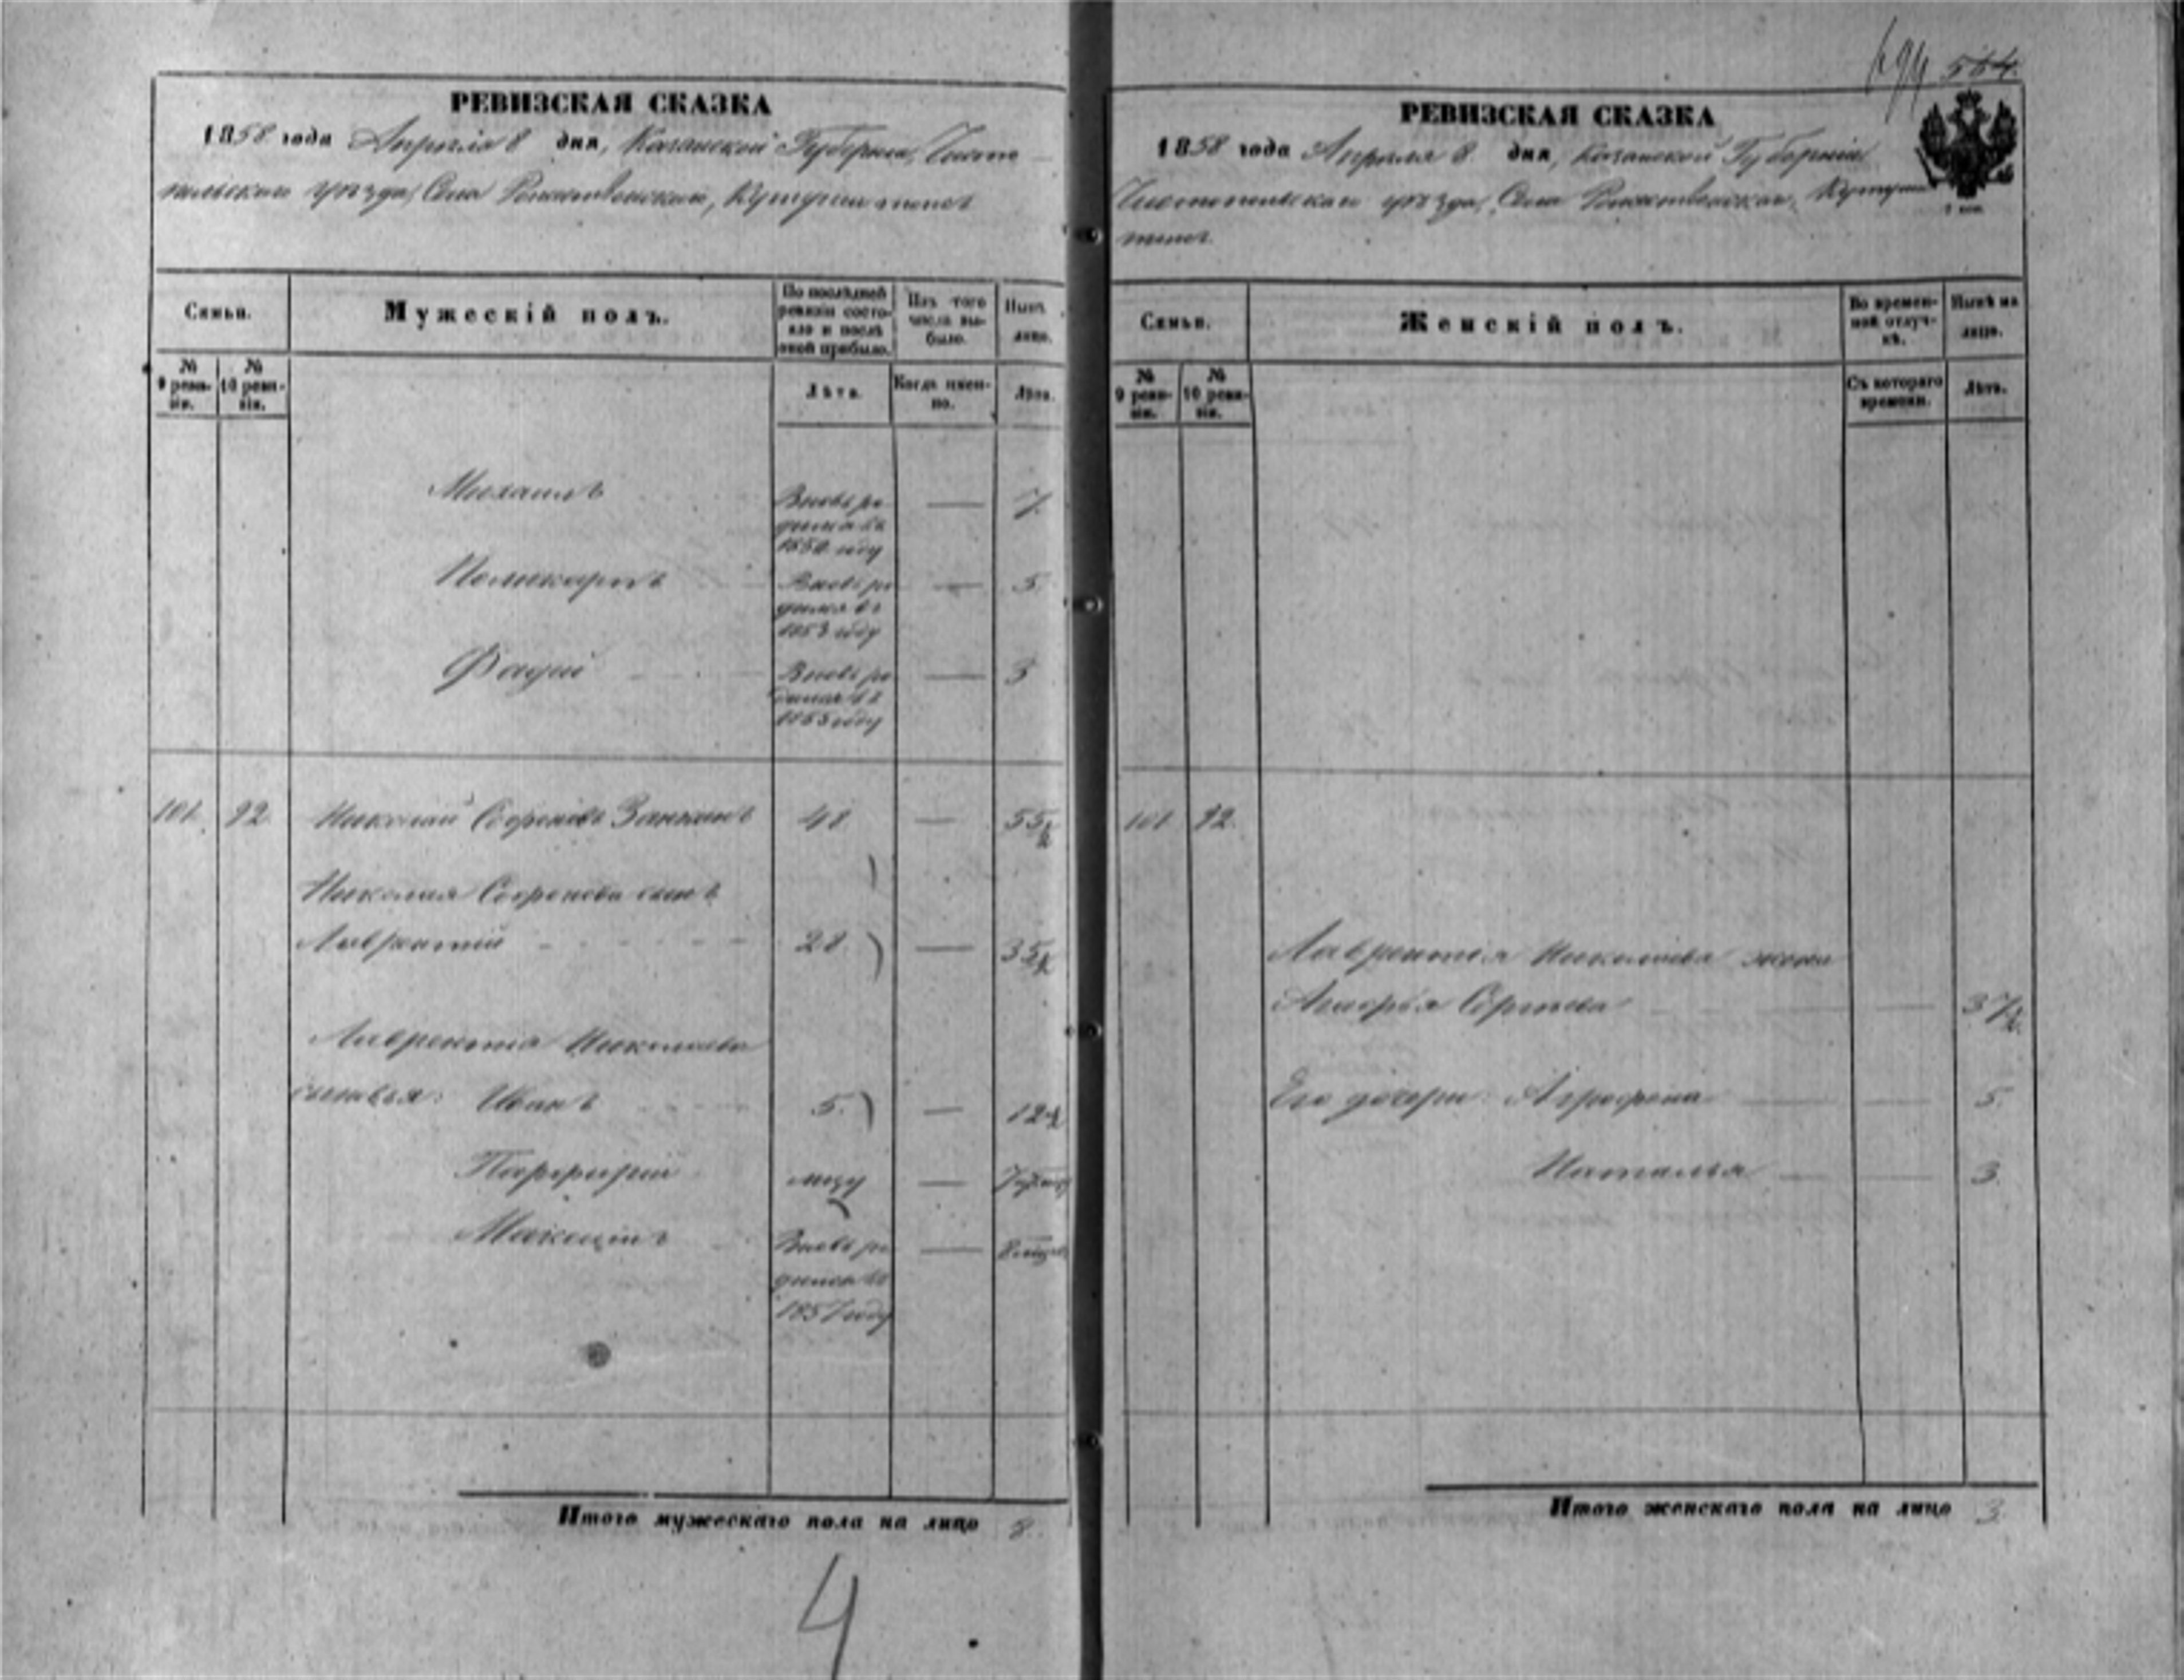 694 564.
РЕВИЗСКАЯ СКАЗКА
1858 года Апреля 8 дня, Казанской Губернии, Чисто-
польскаго уѣзда, Села Рожественскаго,
Семьи.
Мужескій полъ.
По послѣдней ревизіи состояло и послѣ оной прибыло.
Изъ того числа выбыло.
Нынѣ лицо.
№ 9 ревизіи.
№ 10 ревизіи.
Лѣта.
Когда именно.
Лѣта.
Михаилъ
Вновь ро-
дился въ
1850 году
— 7.
Поликарпъ
Вновь ро
дился въ
1853 году
— 5.
Фадѣй
Вновь ро
дился въ
1855 году
— 3
101. 92. Николай Софроновъ 48 — 55½
Николая Софронова сынъ
Лаврентій 28. — 35½
Лаврентія Николаева
сыновья: Иванъ 5. — 12½
Парфирій —
Максимъ
Вновь ро
дился въ
1857 году
—
Итого мужескаго пола на лицо 8.
4
РЕВИЗСКАЯ СКАЗКА
1858 года Апреля 8. дня, Казанской Губерніи
Чистопольскаго уѣзда, Села Рожественскаго,
Семьи.
Женскій полъ.
Во временной отлучкѣ.
Нынѣ на лицо.
№ 9 ревизіи.
№ 10 ревизіи.
Съ котораго времени.
Лѣта.
101 92.
Лаврентія Николаева жена
37½
Его дочери: Аграфена 5.
Наталья 3.
Итого женскаго пола на лицо 3